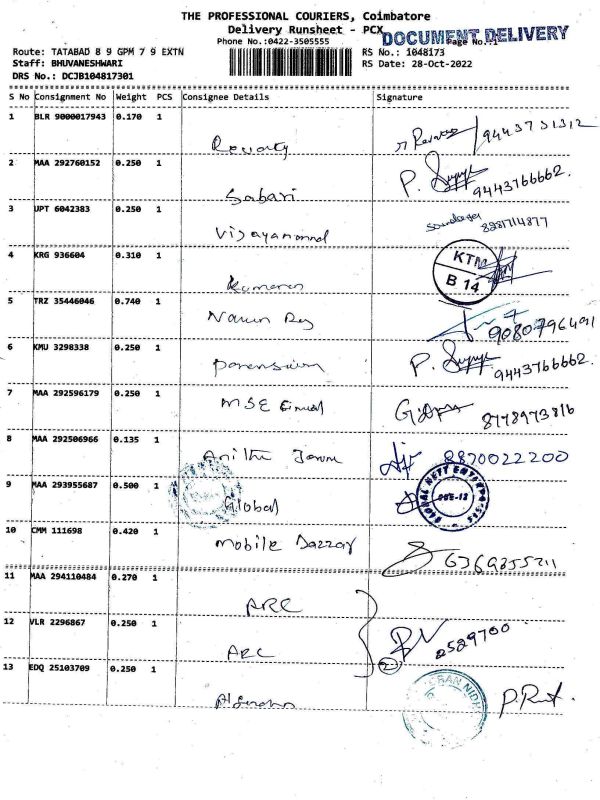 THE PROFESSIONAL COURIERS, Coimbatore
Delivery Runsheet - PCX
DOCUMENT DELIVERY
Phone No.:0422-3505555
Page No.:1
Route: TATABAD 8 9 GPM 7 9 EXTN
RS No.: 1048173
Staff: BHUVANESHWARI
RS Date: 28-Oct-2022
DRS No.: DCJB104817301
S No Consignment No Weight PCS Consignee Details Signature
1 BLR 9000017943 0.170 1 Revathy 9443731312
2 MAA 292760152 0.250 1 Sabari P. 9443766662.
3 UPT 6042383 0.250 1 8281714877
4 KRG 936604 0.310 1 Kumaran KTM B 14
5 TRZ 35446046 0.740 1 9080796491
6 KMU 3298338 0.250 1 P. 9443766662.
7 MAA 292596179 0.250 1 MSE 8778973816
8 MAA 292506966 0.135 1 8870022200
9 MAA 293955687 0.500 1 Global
10 CMM 111698 0.420 1 Mobile 6369355211
11 MAA 294110484 0.270 1 ARC
12 VLR 2296867 0.250 1 ARC 2529700
13 EDQ 25103709 0.250 1